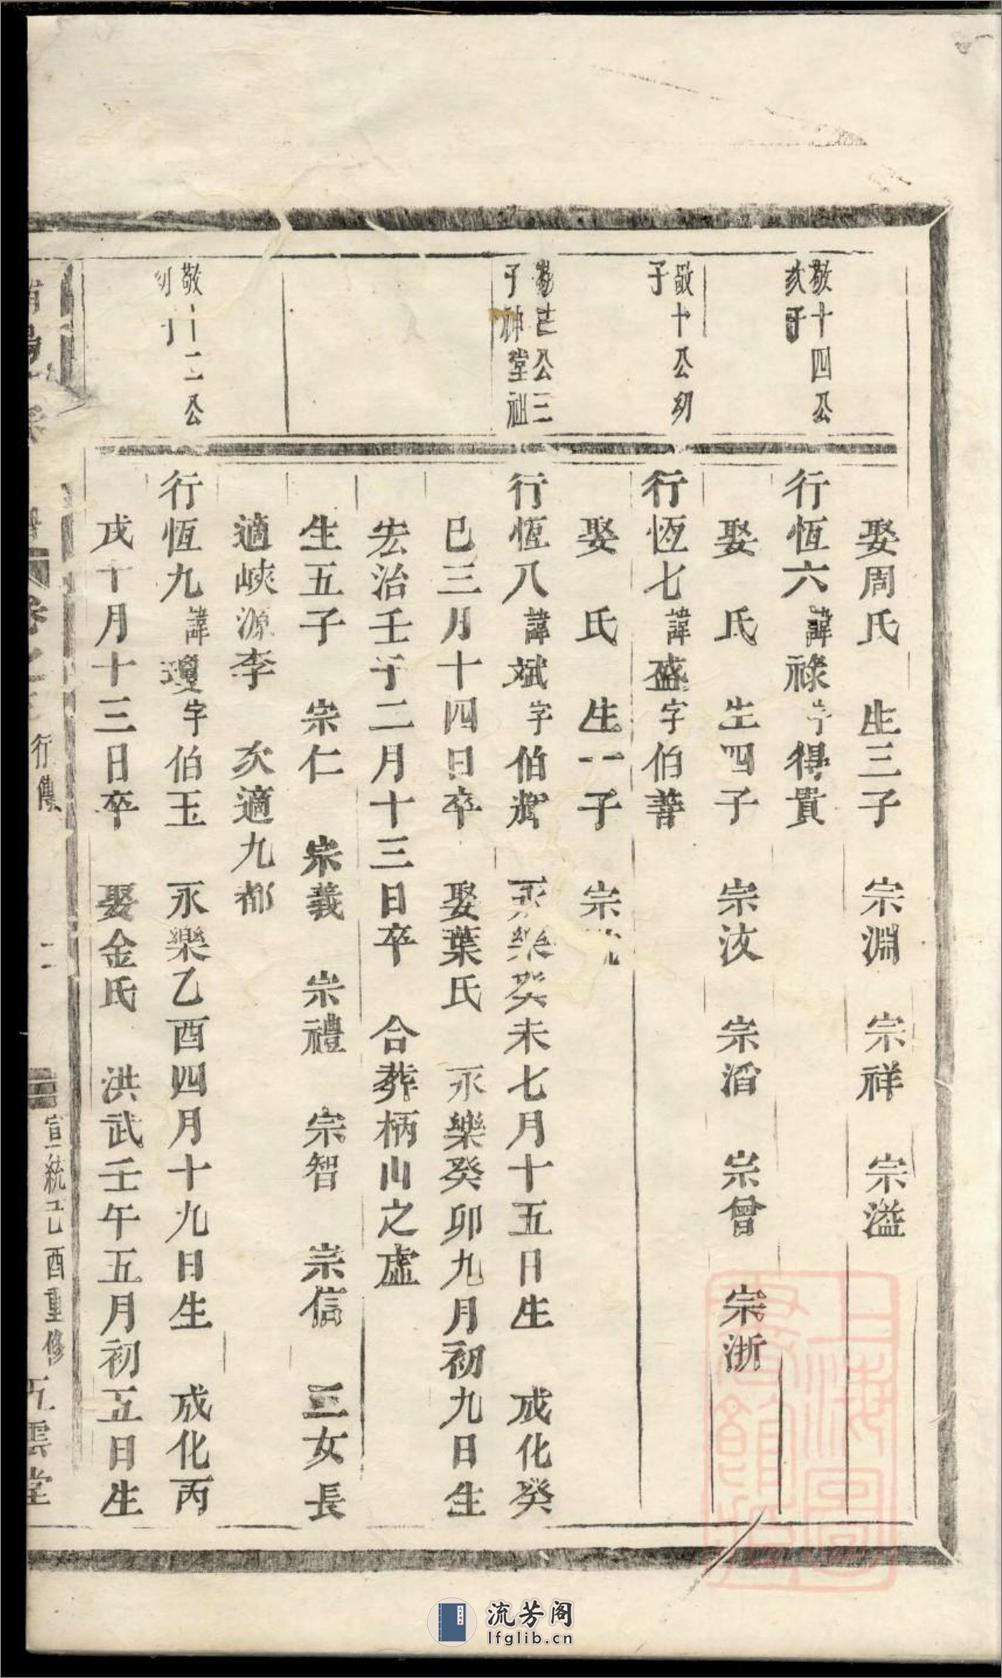 娶周氏 生三子 宗淵 宗祥 宗溢
敬十四公
次子
行恆六諱祿字得貴
娶 氏 生四子 宗汶 宗滔 宗曾 宗浙
敬十公幼
子
行恆七諱盛字伯善
娶 氏 生一子 宗
公三
子神堂祖
行恆八諱斌字伯 永樂癸未七月十五日生 成化癸
巳三月十四日卒 娶葉氏 永樂癸卯九月初九日生
宏治壬子二月十三日卒 合葬柄山之虛
生五子 宗仁 宗義 宗禮 宗智 宗信 三女長
適峽源李 次適九都
敬十二公
幼子
行恆九諱瓊字伯玉 永樂乙酉四月十九日生 成化丙
戌十月十三日卒 娶金氏 洪武壬午五月初五日生
卷之 行傳 宣統己酉重修 五雲堂
上海圖書館藏
流芳阁
lfglib.cn